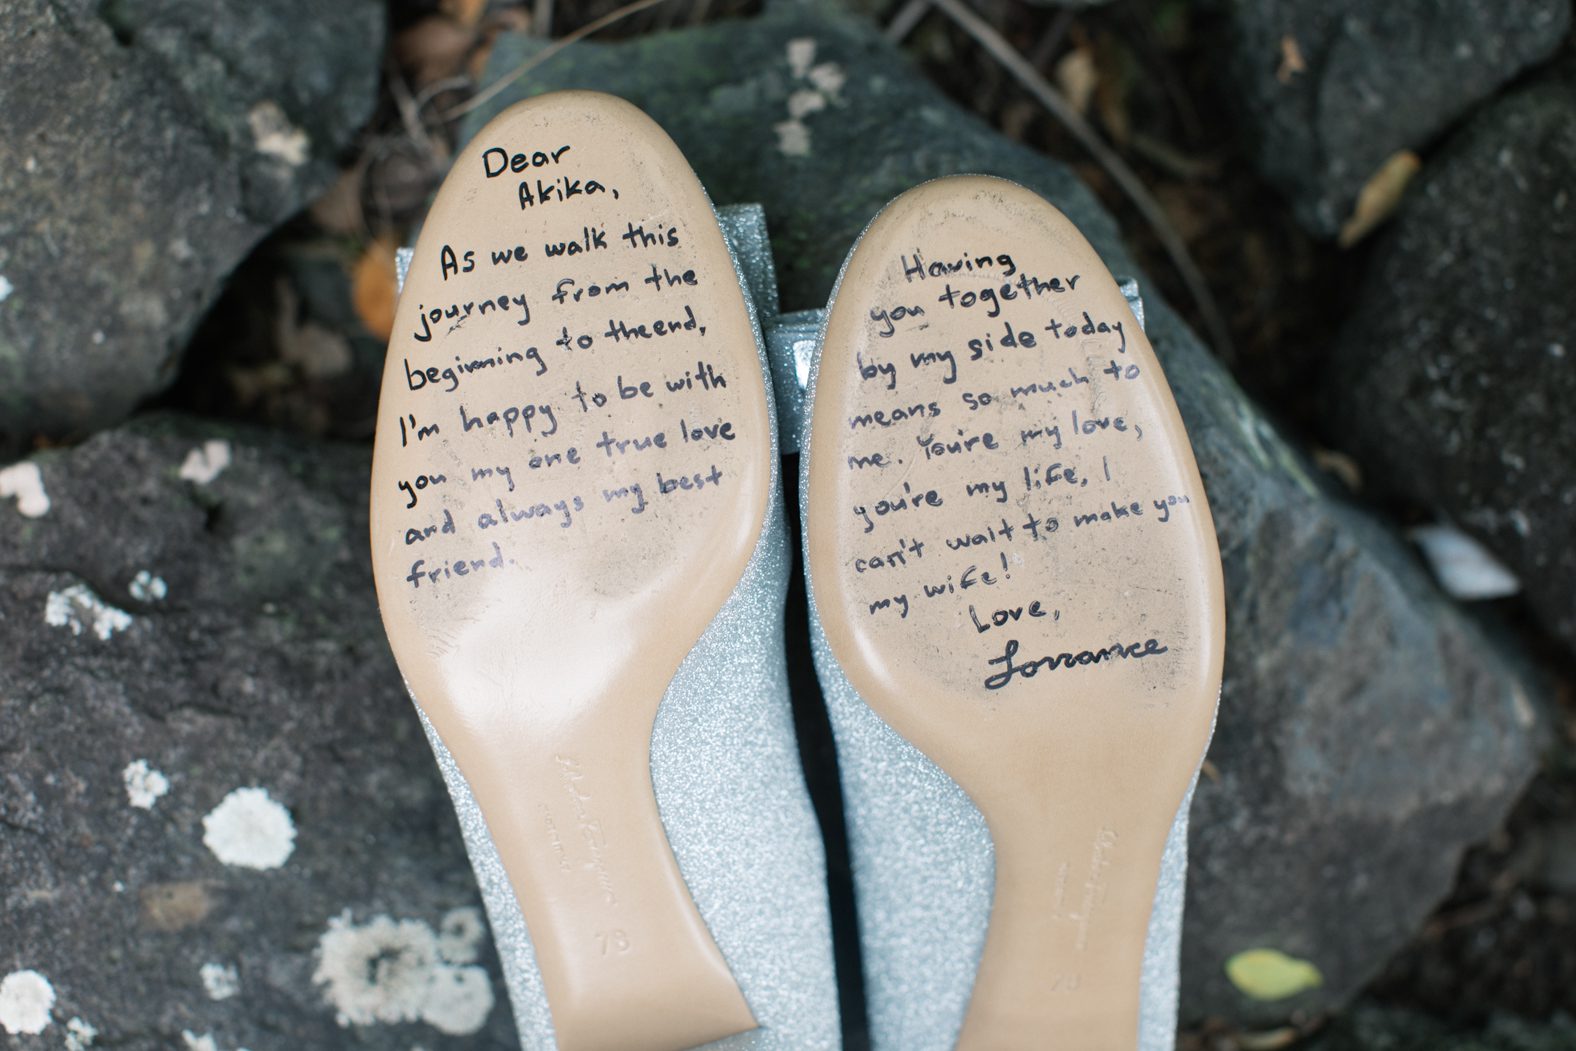 Dear
Akika,
As we walk this
journey from the
beginning to the end,
I'm happy to be with
you my one true love
and always my best
friend.
Having
you together
by my side today
means so much to
me. You're my love,
you're my life, I
can't wait to make you
my wife!
Love,
Lorrance